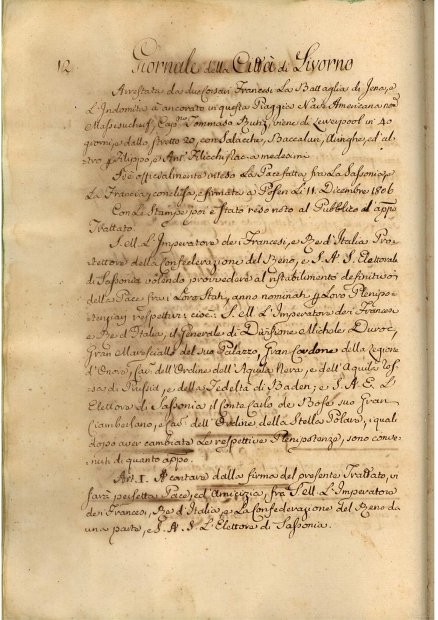 12 Giornale della Città di Livorno
Arrestata da due Corsari Francesi La Battaglia di Jena, e
L'Indomito è ancorato in questa Piaggia Nave Americana nom.
Massuschusf, Cap.no Tommaso Bunz, viene di Liverpool in 40
giorni, e dallo stretto 20, con Salacche, Baccalari, Aringhe, ed al=
tro p Filippo, e Ant.o Filicchi, Racc. a medesimi
Si è officialmente inteso La Pace fatta fra La Sassonia, e
La Francia, conclusa, e firmata a Posen Li 11. Dicembre 1806
Con Le Stampe poi è stato reso noto al Pubblico il app.o
Trattato
S. M. L'Imperatore de i Francesi, e Re d'Italia Pro=
tettore della Confederazione del Reno, e S. A. S. Elettorale
di Sassonia volendo provvedere al ristabilimento definitivo
della Pace fra i Loro Stati, anno nominati p Loro Plenipo=
tenziarj respettivi, cioè: S. M. L'Imperatore dei Francesi
e Re d'Italia, il Generale di Divisione Michele Duroc,
Gran Maresciallo del suo Palazzo, Gran Cordone della Legione
d'Onore, Cav. dell'Ordine dell'Aquila Nera, e dell'Aquila Ros=
sa di Prussia, e della Fedeltà di Baden; e S. A. E. L'
Elettore di Sassonia il Conte Carlo de Bose suo Gran
Ciamberlano, e Cav. dell'Ordine della Stella Polare, i quali
dopo aver cambiate Le respettive Plenipotenze, sono conve=
nuti di quanto appo.
Art. I. A contare dalla firma del presente Trattato, vi
sarà perfetta Pace, ed Amicizia fra S. M. L'Imperatore
dei Francesi, Re d'Italia, e La Confederazione del Reno da
una parte, e S. A. S. L'Elettore di Sassonia.